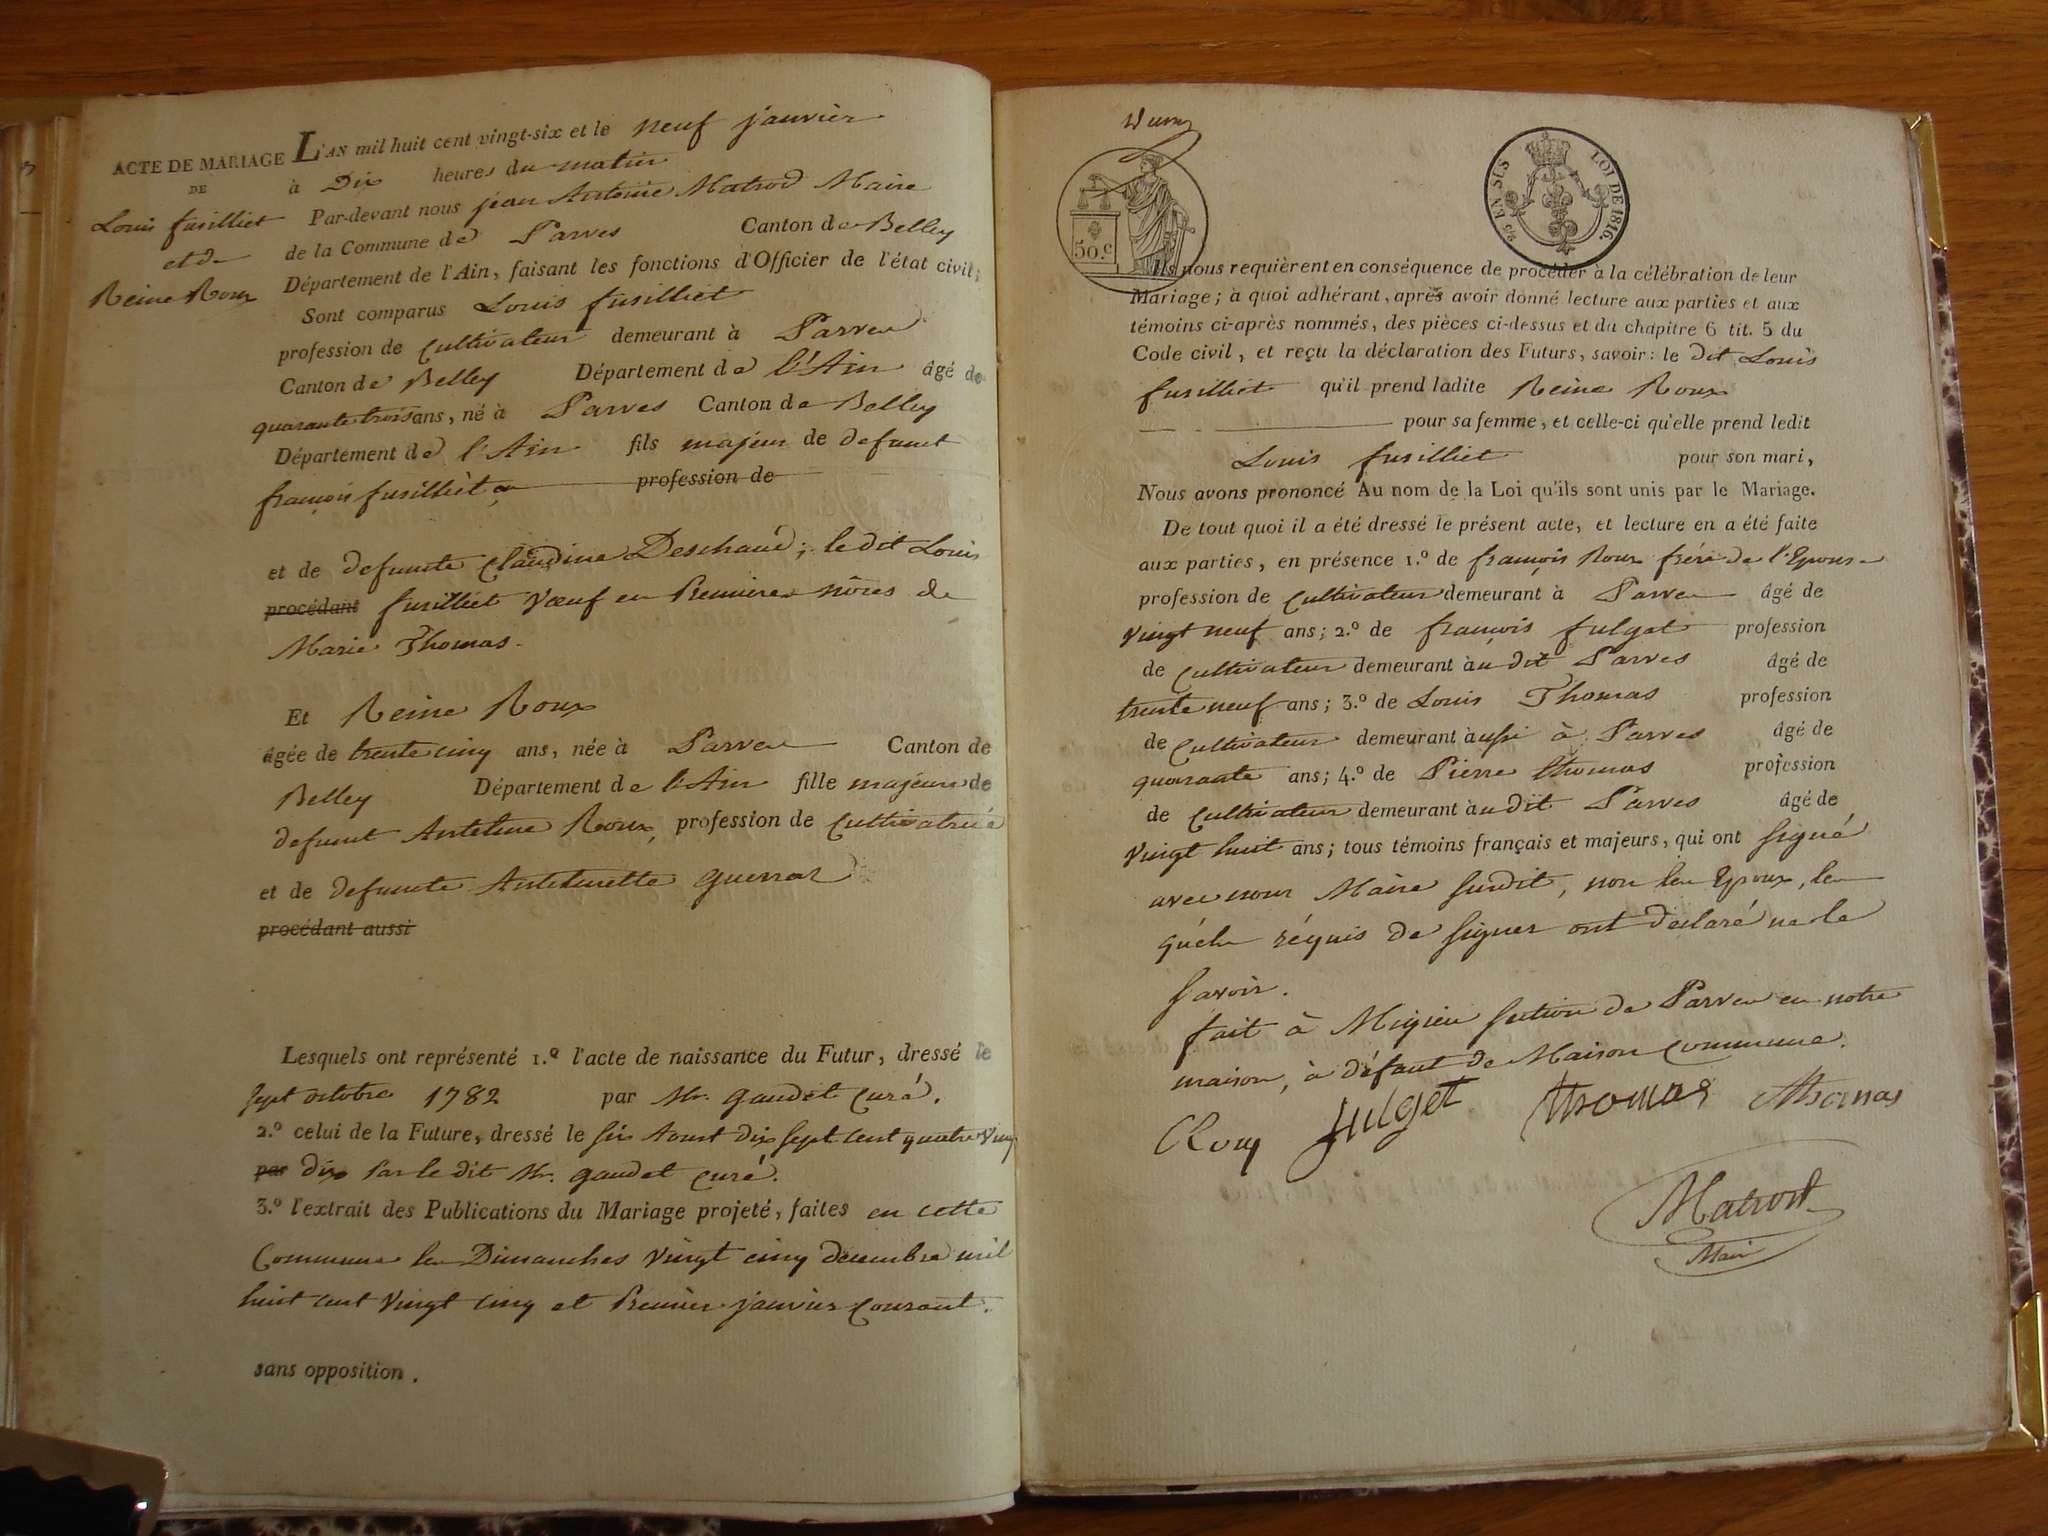 ACTE DE MARIAGE
DE
Louis fusilliet
et de
Reine Roux
L'AN mil huit cent vingt-six et le neuf janvier
à Dix heures du matin
Par-devant nous jean Antoine Matrod Maire
de la Commune de Parves Canton de Belley
Département de l'Ain, faisant les fonctions d'Officier de l'état civil;
Sont comparus Louis fusilliet
profession de Cultivateur demeurant à Parves
Canton de Belley Département de l'Ain âgé de
quarante trois ans, né à Parves Canton de Belley
Département de l'Ain fils majeur de defunt
françois fusilliet profession de
et de defunte Claudine Deschaud; le dit Louis
procédant fusilliet Vœuf en Premieres nôces de
Marie Thomas.
Et Reine Roux
âgée de trente cinq ans, née à Parves Canton de
Belley Département de l'Ain fille majeure de
defunt Anthelme Roux, profession de Cultivatrice
et de defunte Anthelmette guerraz
procédant aussi
Lesquels ont représenté 1.º l'acte de naissance du Futur, dressé le
sept octobre 1782 par Mr. gaudet Curé.
2.º celui de la Future, dressé le six Aoust dix sept cent quatre Vingt
par dix par le dit Mr. gaudet curé.
3.º l'extrait des Publications du Mariage projeté, faites en cette
Commune les Dimanches Vingt cinq decembre mil
huit cent Vingt cinq et Premier janvier Courant.
sans opposition.
50.c
EN SUS
LOI DE 1816.
Ils nous requièrent en conséquence de procéder à la célébration de leur
Mariage; à quoi adhérant, après avoir donné lecture aux parties et aux
témoins ci-après nommés, des pièces ci-dessus et du chapitre 6 tit. 5 du
Code civil, et reçu la déclaration des Futurs, savoir: le dit Louis
fusilliet qu'il prend ladite Reine Roux
pour sa femme, et celle-ci qu'elle prend ledit
Louis fusilliet pour son mari,
Nous avons prononcé Au nom de la Loi qu'ils sont unis par le Mariage.
De tout quoi il a été dressé le présent acte, et lecture en a été faite
aux parties, en présence 1.º de françois Roux frére de l'Epouse
profession de Cultivateur demeurant à Parves âgé de
Vingt neuf ans; 2.º de françois fulget profession
de Cultivateur demeurant àu dit Parves âgé de
trente neuf ans; 3.º de Louis Thomas profession
de Cultivateur demeurant àussi à Parves âgé de
quarante ans; 4.º de Pierre thomas profession
de Cultivateur demeurant àu dit Parves âgé de
Vingt huit ans; tous témoins français et majeurs, qui ont signé
avec nous Maire susdit, non les Epoux, les
quels réquis de signer ont declaré ne le
savoir.
fait à Migieu section de Parves en notre
maison, à défaut de Maison Commune.
Roux fulget thomas thomas
Matrod
Maire